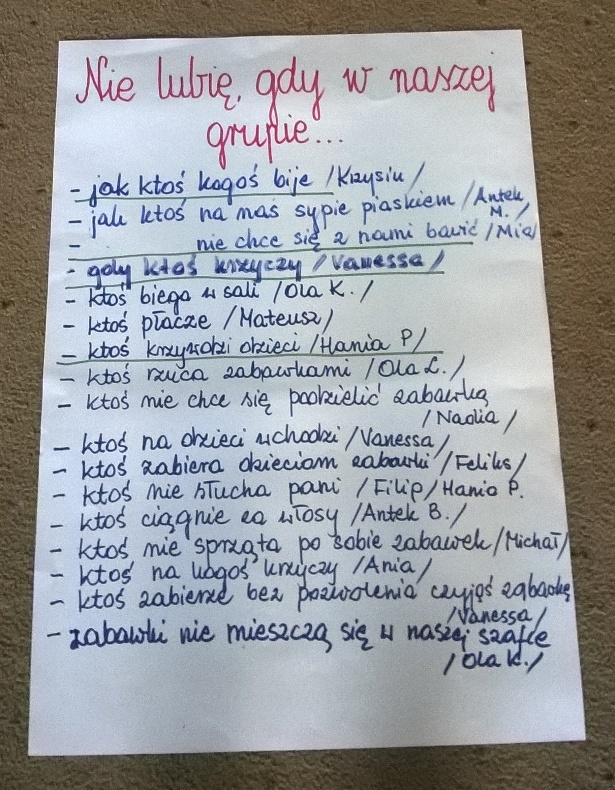 Nie lubię, gdy w naszej
grupie...
- jak ktoś kogoś bije /Krzysiu/
- jak ktoś na nas sypie piaskiem /Antek
M./
- nie chce się z nami bawić /Mia/
- gdy ktoś krzyczy /Vanessa/
- ktoś biega w sali /Ola K./
- ktoś płacze /Mateusz/
- ktoś krzywdzi dzieci /Hania P/
- ktoś rzuca zabawkami /Ola L./
- ktoś nie chce się podzielić zabawką
/Nadia/
- ktoś na dzieci wchodzi /Vanessa/
- ktoś zabiera dzieciom zabawki /Feliks/
- ktoś nie słucha pani /Filip/Hania P.
- ktoś ciągnie za włosy /Antek B./
- ktoś nie sprząta po sobie zabawek /Michał/
- ktoś na kogoś krzyczy /Ania/
- ktoś zabierze bez pozwolenia czyjąś zabawkę
/Vanessa/
- zabawki nie mieszczą się w naszej szafce
/Ola K./